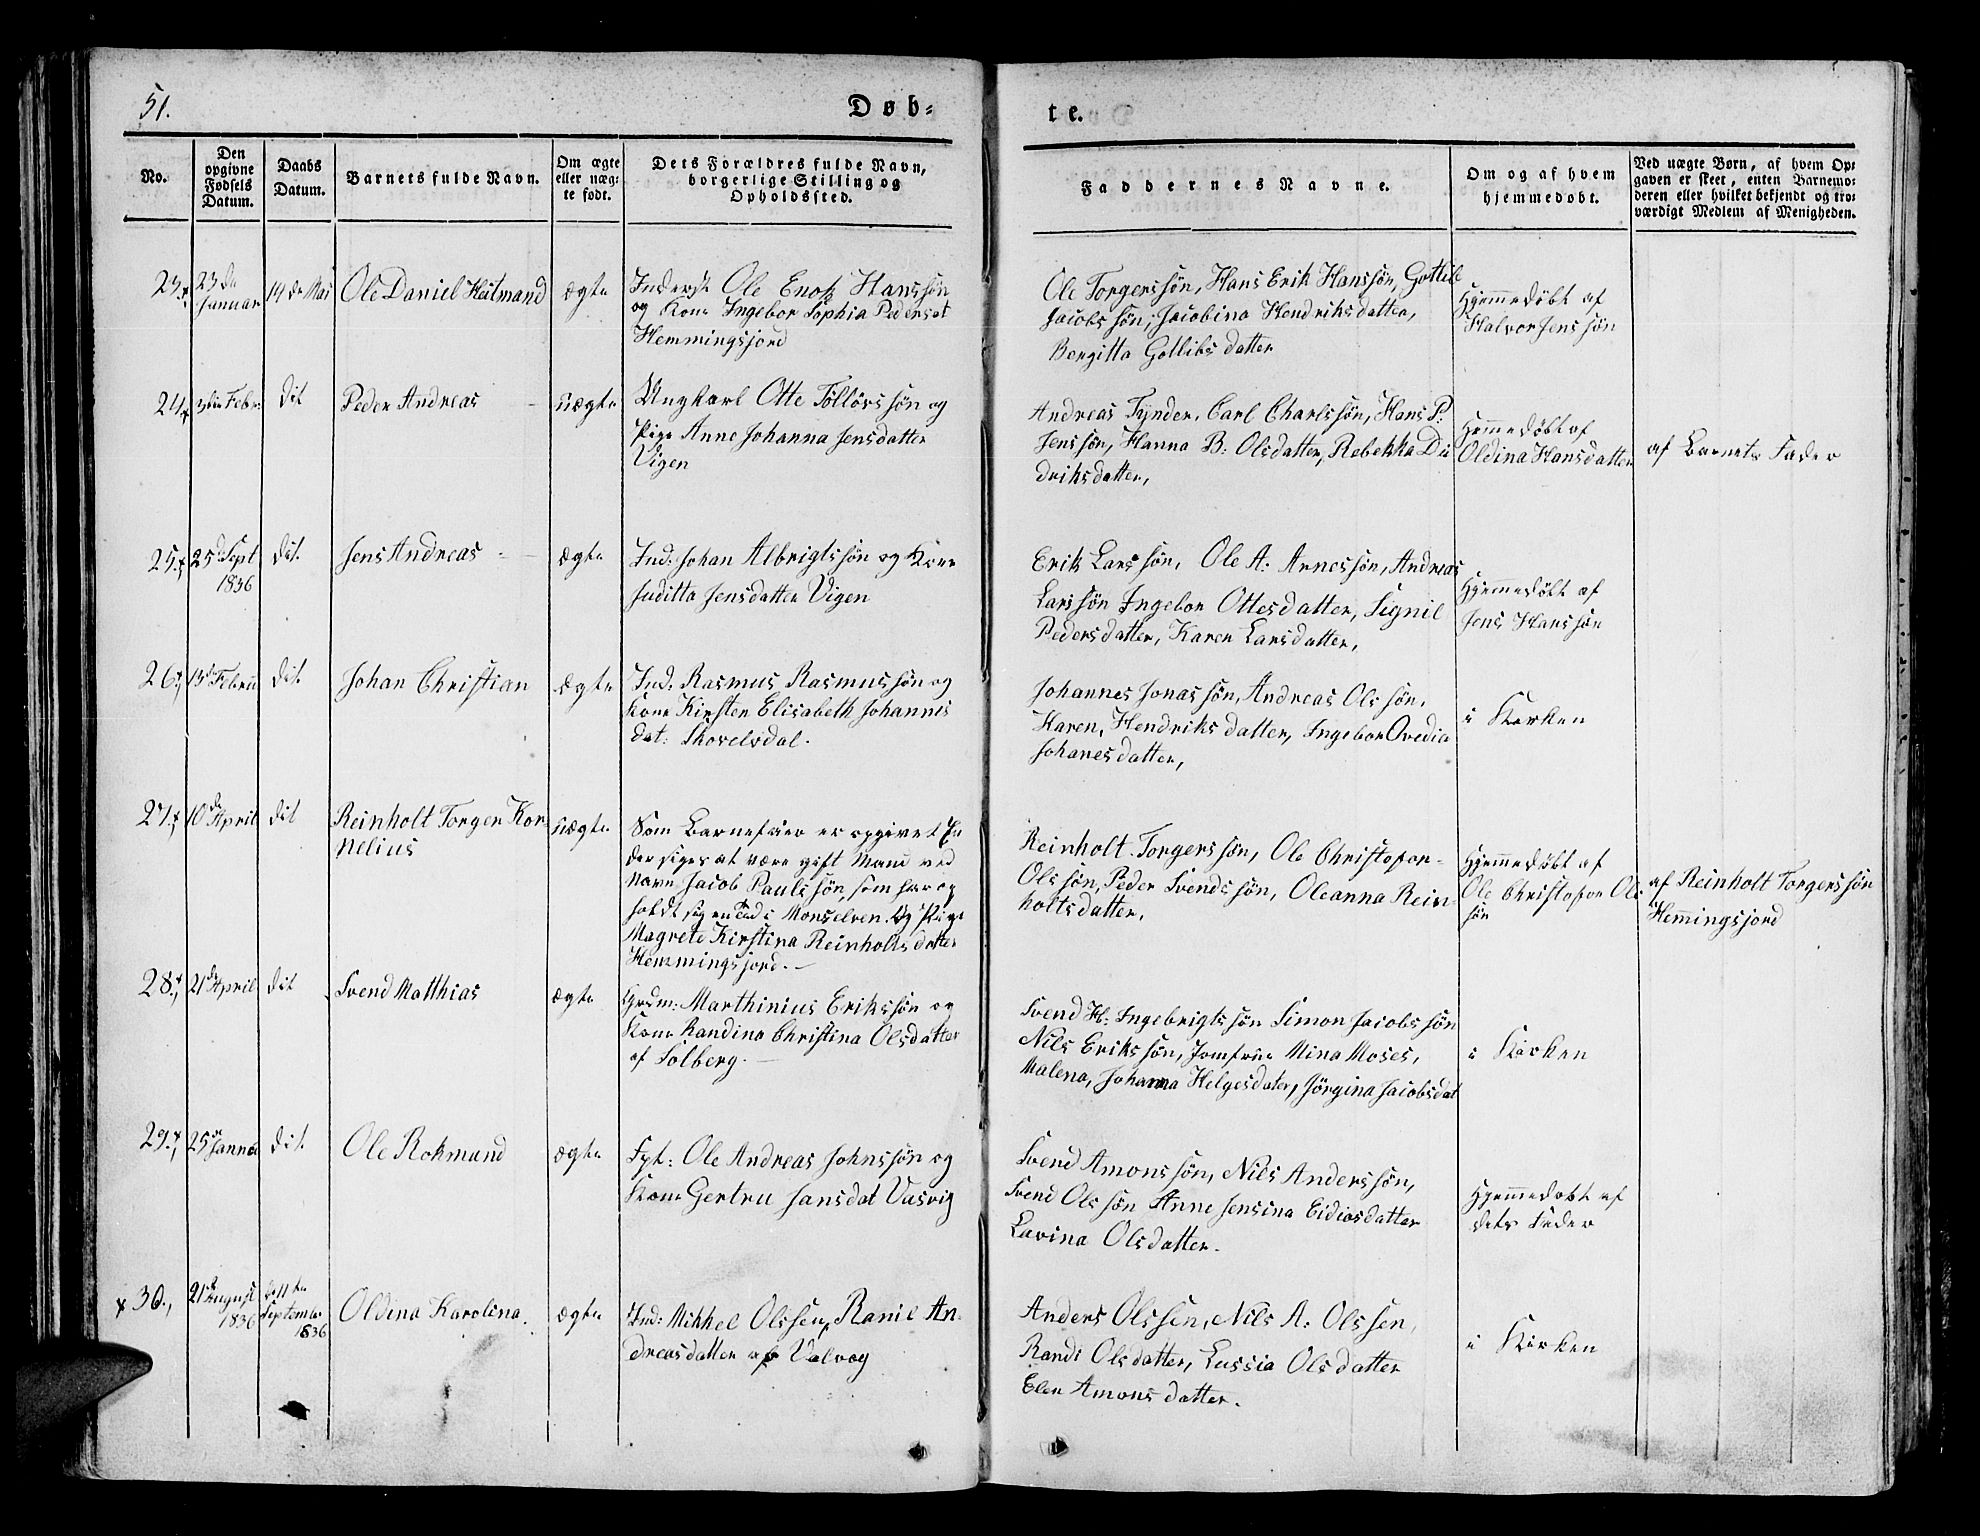 51.
Døb-
te.
No.
Den opgivne Fødsels Datum.
Daabs Datum.
Barnets fulde Navn.
Om ægte eller uæg-te født.
Dets Forældres fulde Navn, borgerlige Stilling og Opholdssted.
Faddernes Navne.
Om og af hvem hjemmedøbt.
Ved uægte Børn, af hvem Op-gaven er skeet, enten Barnemo-deren eller hvilket bekjendt og tro-værdigt Medlem af Menigheden.
23.
23de
Januar
14de Mai
Ole Daniel Heitmand
ægte
Inderst Ole Enok Hanssøn
og Kone Ingebor Sophia Pedersdt
Hemmingsjord
Ole Torgerssøn, Hans Erik Hanssøn, Gottlib
Jacobssøn, Jacobina Hendriksdatter,
Bergitta Gotlibsdatter
Hjemmedøbt af
Halvor Jenssøn
24.
3die Febr:
dit
Peder Andreas
uægte
Ungkarl Otte Tollovssøn og
Pige Anne Johanna Jensdatter
Vigen
Andreas Tynder, Carl Charlssøn, Hans P.
Jenssøn, Hanna B: Olsdatter, Rebekka Di
driksdatter,
Hjemmedøbt af
Oldina Hansdatter
af Barnets Fader
25.
25d Sept
1836
dit.
Jens Andreas
ægte
Ind: Johan Albrigtssøn og Kone
Juditta Jensdatter Vigen
Erik Larssøn, Ole A: Arnessøn, Andreas
Larssøn Ingebor Ottesdatter, Signil
Pedersdatter, Karen Larsdatter,
Hjemmedøbt af
Jens Hanssøn
26.
13d Februa
dit.
Johan Christian
ægte
Ind: Rasmus Rasmussøn og
Kone Kirsten Elisabeth Johannes
dat: Skovelsdal.
Johannes Jonassøn, Andreas Olssøn,
Karen, Hendriksdatter, Ingebor Ovedia
Johanesdatter,
i Kirken
27.
10de April
dit
Reinholt Torger Kor-
nelius
uægte
Som Barnefader er opgivet En
der siges at være gift Mand ved
Navn Jacob Paulssøn, som har op
holdt sig en Tid i Monselven. Og Pige
Magrete Kirstina Reinholtsdatter
Hemmingsjord.
Reinholt Torgerssøn, Ole Christopor-
Olssøn, Peder Svendssøn, Oleanna Rein-
holtsdatter,
Hjemmedøbt af
Ole Christopor Ols
søn
af Reinholt Torgerssøn
Hemingsjord
28.
21de April
dit
Svend Matthias
ægte
Grdm: Marthinius Erikssøn og
Kone Randina Christina Olsdatter
af Solberg.
Svend H: Ingebrigtssøn Simon Jacobssøn
Nils Erikssøn, Jomfrue Mina Moses,
Malena, Johanna Helgesdater, Jørgina Jacobsdat
i Kirken
29.
25de Januar
dit.
Ole Rokmand
ægte
Fgt: Ole Andreas Johnssøn og
Kone Gertru Hansdat Vasvig
Svend Amonssøn, Nils Anderssøn,
Svend Olssøn Anne Jensina Eidiasdatter
Lavina Olsdatter.
Hjemmedøbt af
dets Fader
30.
21d August
1836
d. 11te
September
1836
Oldina Karolina.
ægte
Ind: Mikkel Olssen, Ranil An-
dreasdatter af Valvog
Anders Olssen, Nils A: Olssen,
Randi Olsdatter, Lussia Olsdatter
Elen Amonsdatter.
i Kirken